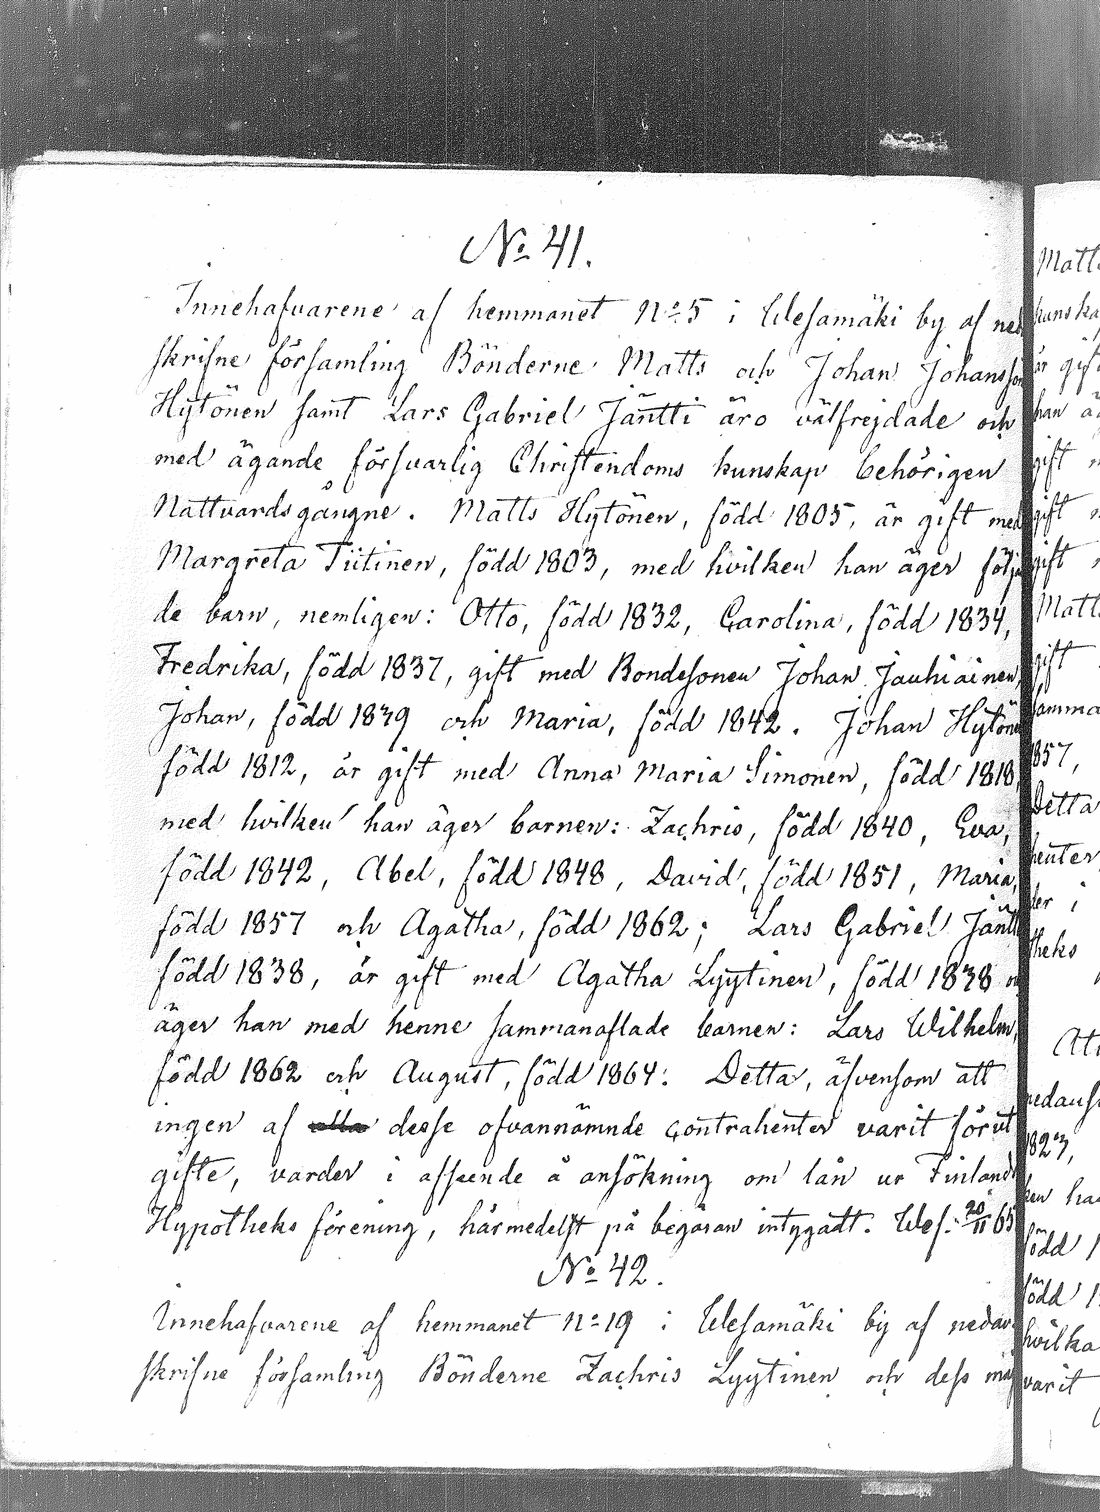 No 41.
Innehafvarene af hemmanet No 5 i Wesamäki by af ned
skrifne församling Bönderne Matts och Johan Johansson
Hytönen samt Lars Gabriel Jäntti äro välfrejdade och
med ägande försvarlig Christendoms kunskap behörigen
Nattvardsgångne. Matts Hytönen, född 1805, är gift med
Margreta Tiitinen, född 1803, med hvilken han äger följan
de barn, nemligen: Otto, född 1832, Carolina, född 1834,
Fredrika, född 1837, gift med Bondesonen Johan Jauhiainen,
Johan, född 1839 och Maria, född 1842. Johan Hytönen
född 1812, är gift med Anna Maria Simonen, född 1818,
med hvilken han äger barnen: Zachris, född 1840, Eva,
född 1842, Abel, född 1848, David, född 1851, Maria,
född 1857 och Agatha, född 1862; Lars Gabriel Jäntti
född 1838, är gift med Agatha Lyytinen, född 1838 o
äger han med henne sammanaflade barnen: Lars Wilhelm,
född 1862 och August, född 1864. Detta, äfvensom att
ingen af alla desse ofvannämnde contrahenter varit förut
gifte, varder i afseende å ansökning om lån ur Finlands
Hypotheks förening, härmedelst på begäran intygadt. Wes. 20/11 65
No 42.
Innehafvarene af hemmanet No 19 i Wesamäki by af nedan
skrifne församling Bönderne Zachris Lyytinen och dess måg
Matts
kunska
är gift
han äg
gift m
gift m
gift m
Matts
gift
samma
1857,
Detta
henter
der i
theks
Att
nedansk
1823,
ken ha
född 1
född 1
hvilka
varit